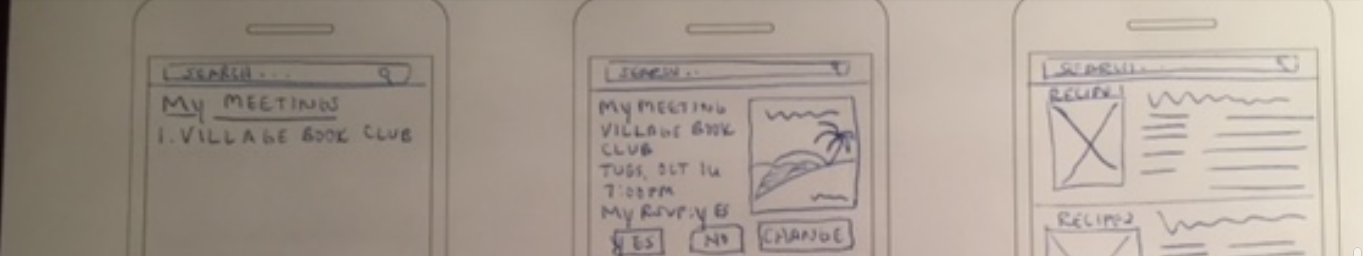 SEARCH...
MY MEETINGS
1. VILLAGE BOOK CLUB
SEARCH..
MY MEETING
VILLAGE BOOK
CLUB
TUES, OCT 14
7:00PM
MY RSVP: YES
YES NO CHANGE
SEARCH...
RECIPE 1
RECIPE 2